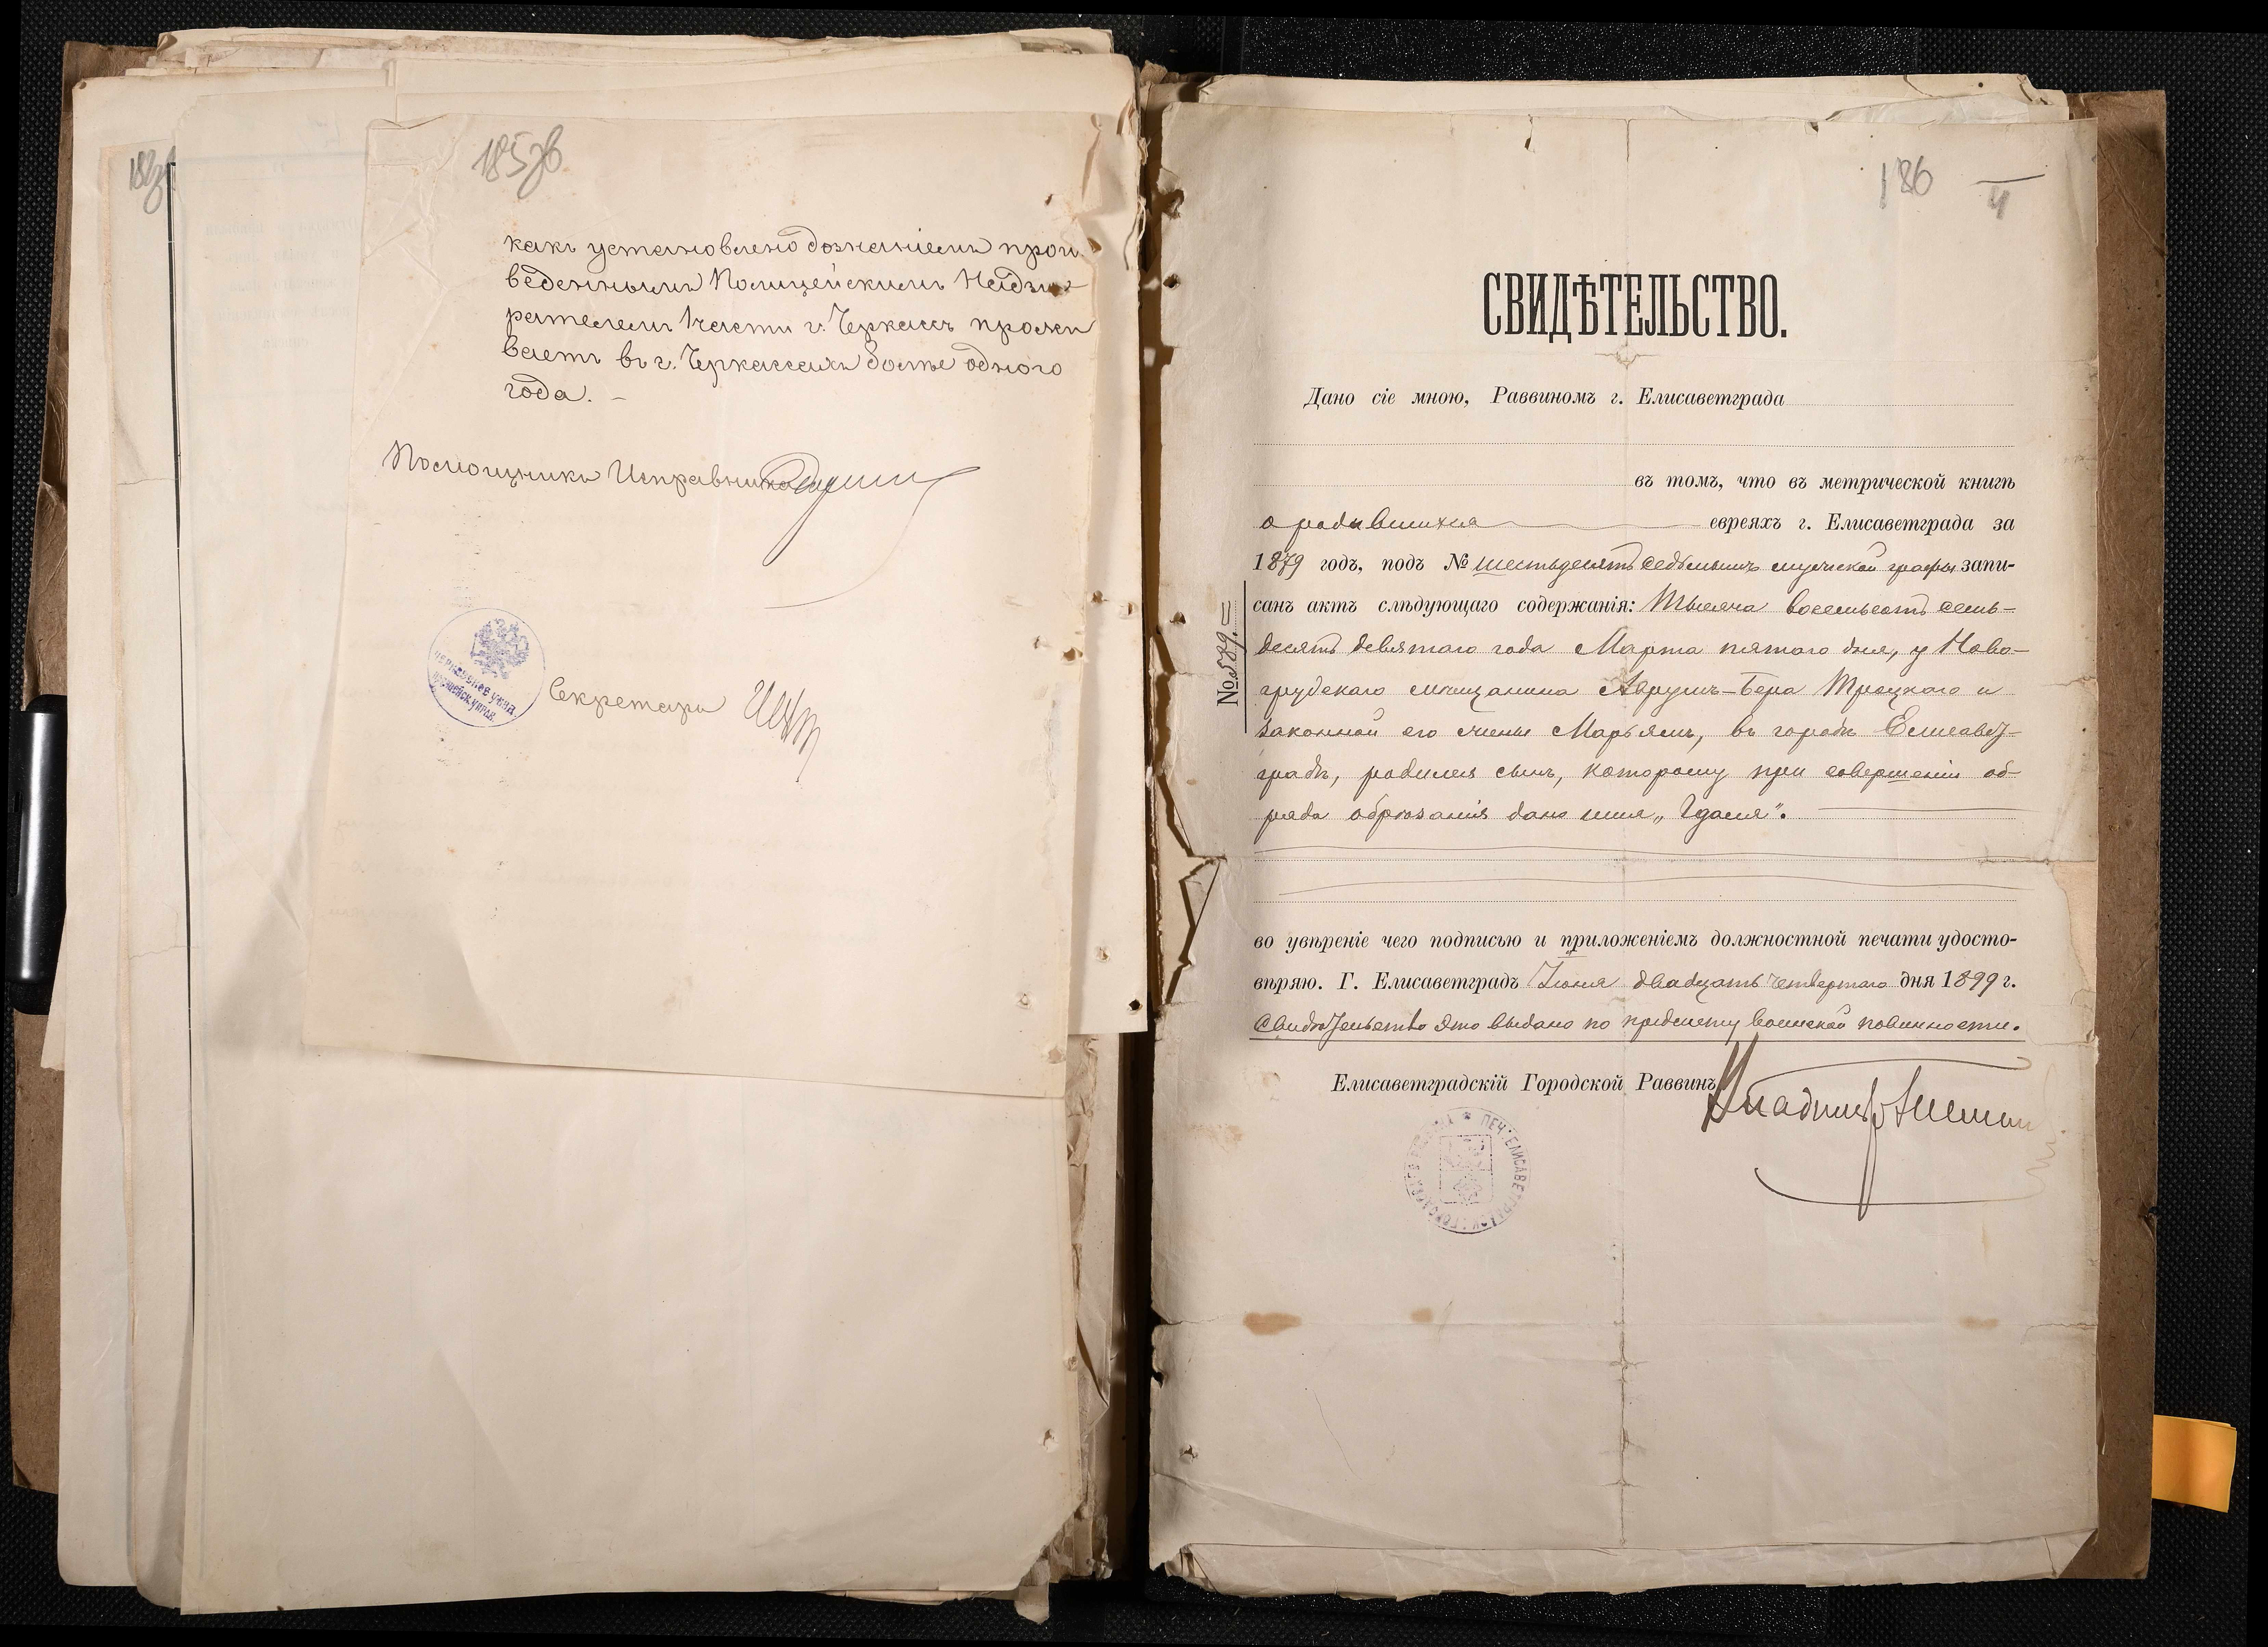 185 об
какъ установлено дознаніемъ произ-
веденнымъ Полицейскимъ Надзи-
рателемъ 1 части г. Черкассъ прожи
ваетъ въ г. Черкассахъ болѣе одного
года. –
Помощникъ Исправника
Секретарь
186
4
СВИДѢТЕЛЬСТВО.
Дано сіе мною, Раввиномъ г. Елисаветграда
въ томъ, что въ метрической книгѣ
о родившихся евреяхъ г. Елисаветграда за
1879 годъ, подъ № шестьдесятъ седьмымъ мужской графы запи-
санъ актъ слѣдующаго содержанія: Тысяча восемьсотъ семь-
десятъ девятаго года Марта пятаго дня, у Ново-
грудскаго мѣщанина Аврумъ-Бера Троцкаго и
законной его жены Марьямъ, въ городѣ Елисавет-
градѣ, родился сынъ, которому при совершеніи об-
ряда обрѣзанія дано имя „Гдалія".
№ 589. =
во увѣреніе чего подписью и приложеніемъ должностной печати удосто-
вѣряю. Г. Елисаветградъ Іюня двадцать четвертаго дня 1899 г.
Свидѣтельство это выдано по предмету воинской повинности.
Елисаветградскій Городской Раввинъ Владиміръ